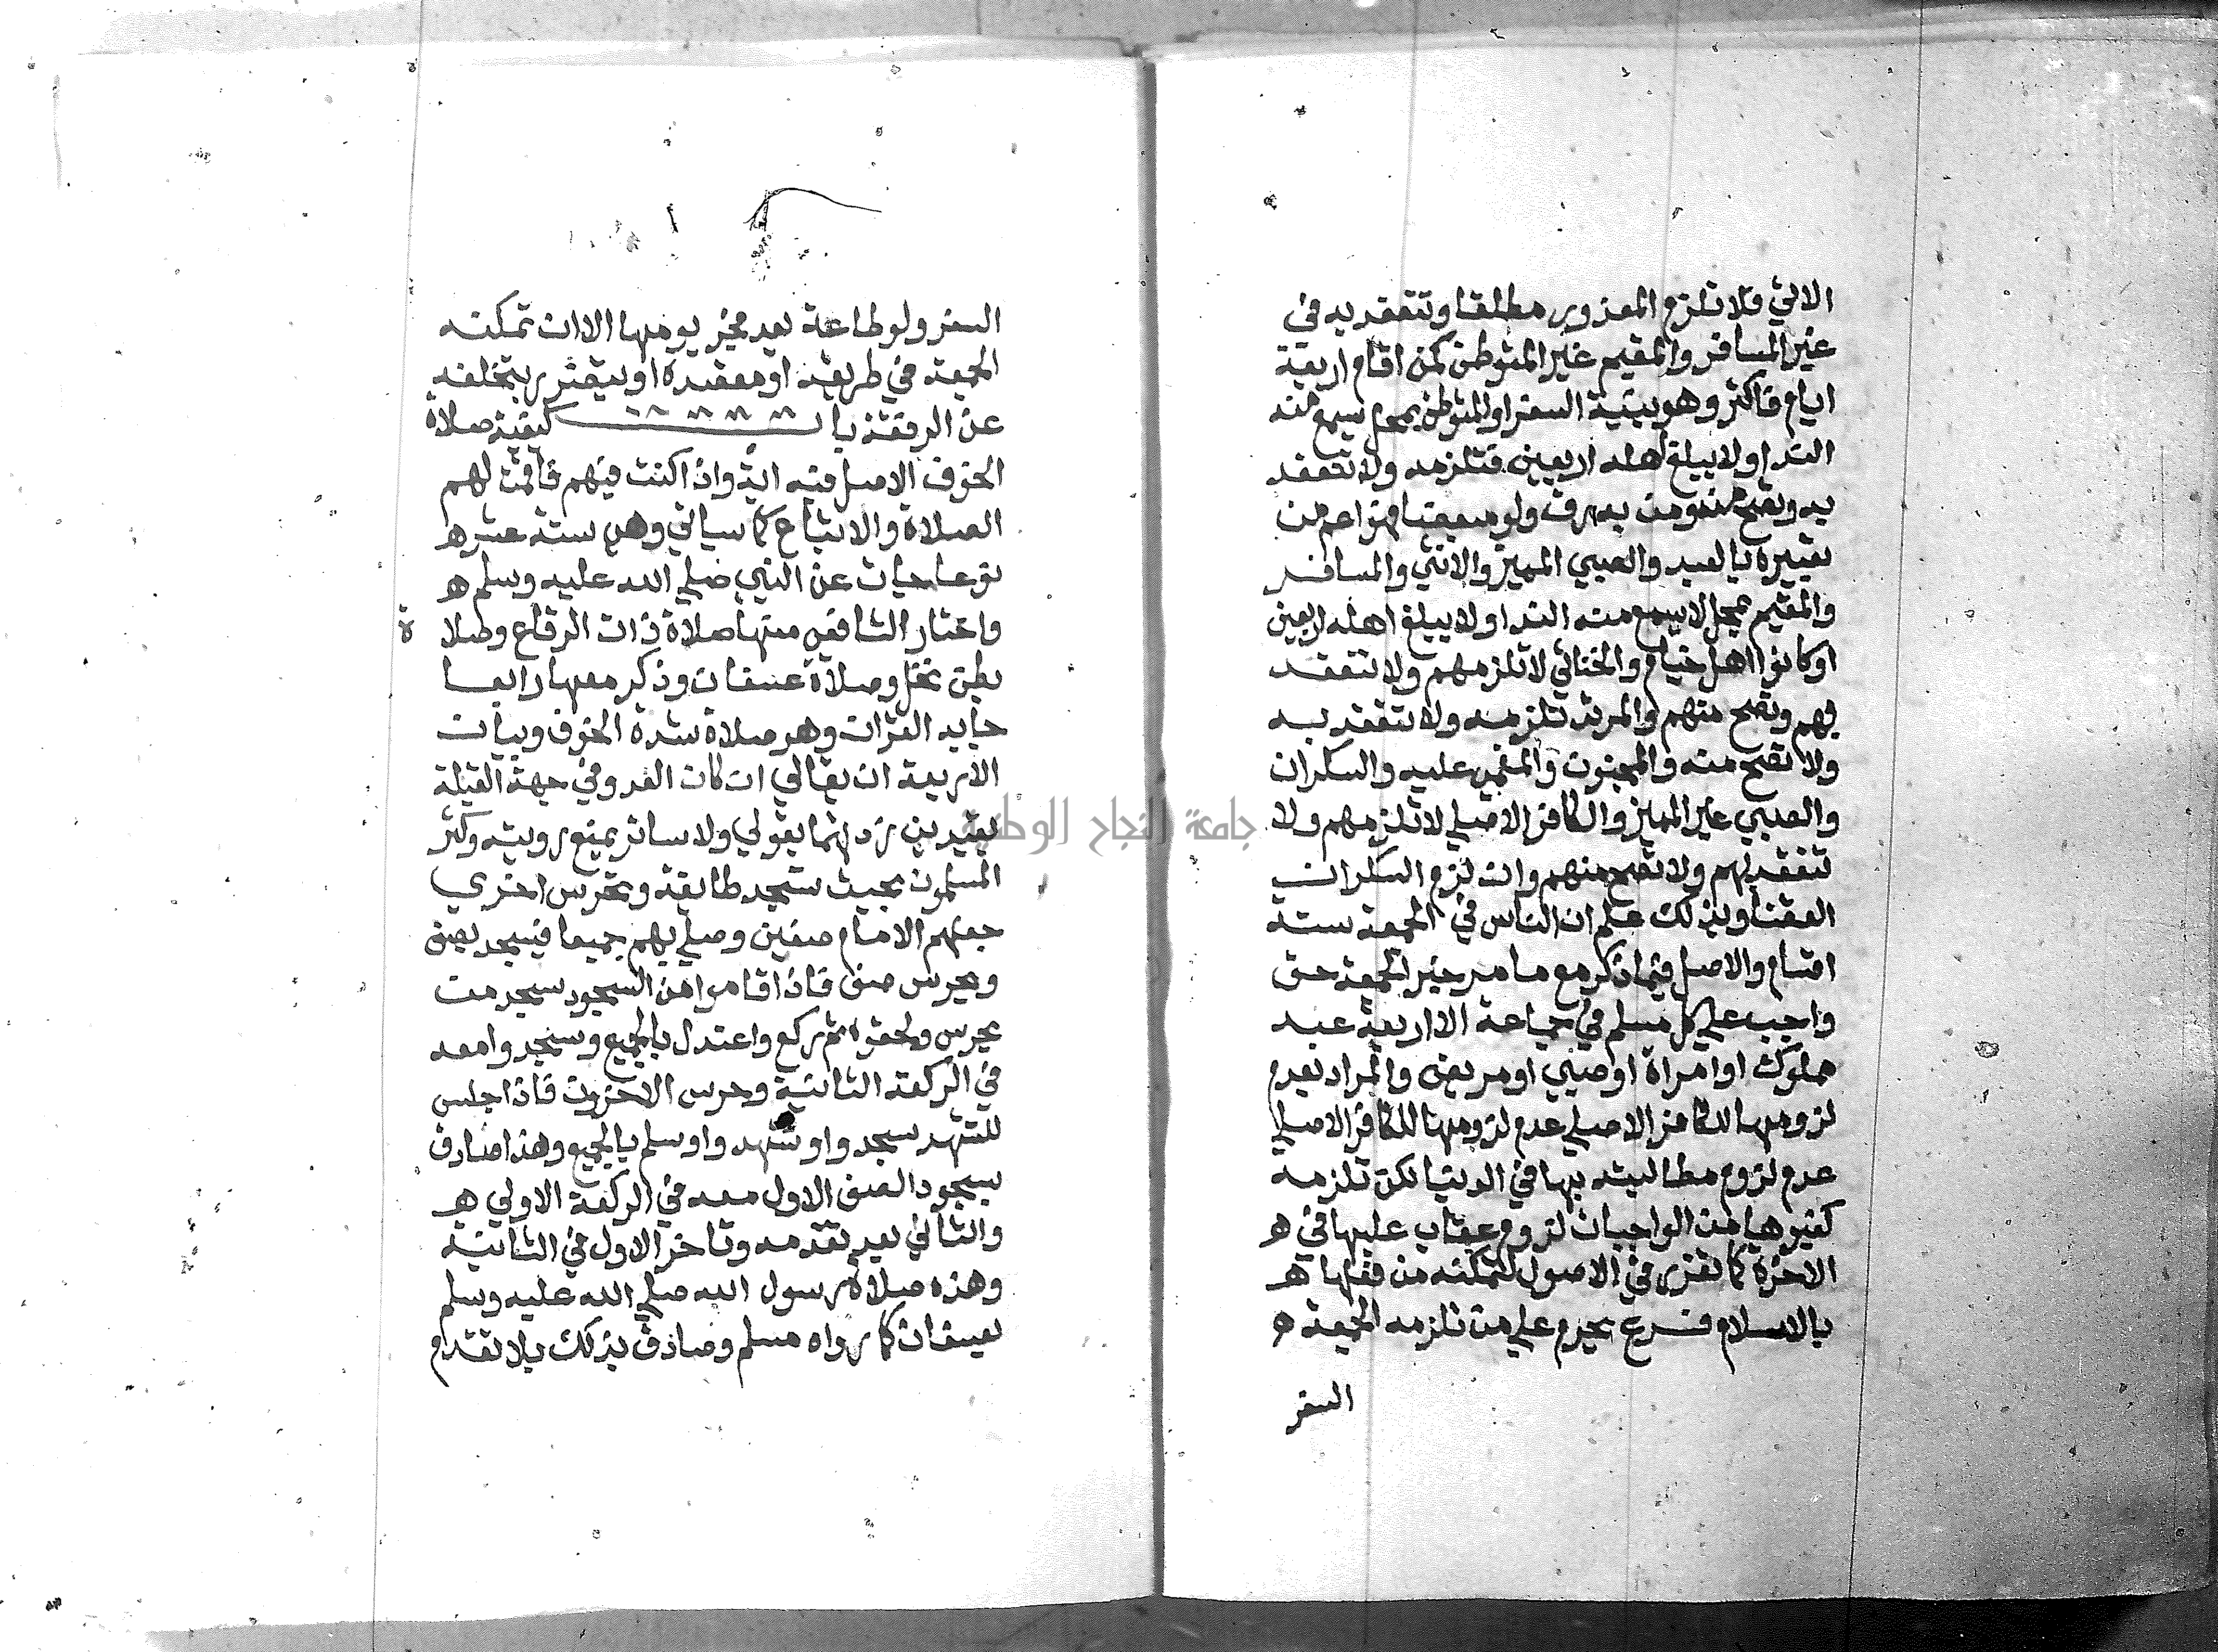 الاتي فلا تلزم المعذور مطلقا وتنعقد به في
غير المسافر والمقيم غير المتوطن كمن اقام اربعة
ايام فاكثر وهو بنية السفر او المتوطن بمحل يسمع منه
الندا ولا يبلغ اهله اربعين فتلزمه ولا تنعقد
به وتصح منه ومن به رق ولو مبعضا فهو اعم من
تعبيره بالعبد والصبي المميز والانثي والمسافر
والمقيم بمحل لا يسمع منه الندا ولا يبلغ اهله اربعين
او كانوا اهل خيام والخناثي لا تلزمهم ولا تنعقد
بهم وتصح منهم والمرتد تلزمه ولا تنعقد به
ولا تصح منه والمجنون والمغمي عليه والسكران
والصبي غير المميز والكافر الاصلي لا تلزمهم ولا
تنعقد بهم ولا تصح منهم وان لزم السكران
القضا وبذلك علم ان الناس في الجمعة ستة
اقسام والاصل فيما ذكر مع ما مر خبر الجمعة حق
واجب علي كل مسلم في جماعة الا اربعة عبد
مملوك او امراة او صبي او مريض والمراد بعدم
لزومها للكافر الاصلي عدم لزومها للكافر الاصلي
عدم لزوم مطالبته بها في الدنيا لكن تلزمه
كغيرها من الواجبات لزوم عقاب عليها في ه
الاخرة كما تقرر في الاصول لتمكنه من فعلها ه
بالاسلام فرع يحرم علي من تلزمه الجمعة ه
السفر
السفر ولو طاعة بعد فجر يومها الا ان تمكنه
الجمعة في طريقه او مقصده او يتضرر بتخلفه
عن الرفقة باب كيفية صلاة
الخوف الاصل فيه اية واذا كنت فيهم فاقمت لهم
الصلاة والاتباع كما سياتي وهي ستة عشر ه
نوعا جات عن النبي صلي الله عليه وسلم ه
واختار الشافعي منها صلاة ذات الرقاع وصلا ة
بطن نخل وصلاة عسفان وذكر معها رابعا
جا به القران وهو صلاة شدة الخوف وبيان
الاربعة ان يقالي ان كان العدو في جهة القبلة
بقيدين زدتهما بقولي ولا ساتر يمنع رويته وكثر
المسلمون بحيث تسجد طايفة وتحرس اخري
جعلهم الامام صفين وصلي بهم جميعا فيسجد بصف
ويحرس صف فاذا قاموا من السجود سجد من
يحرس ولحقوه ثم ركع واعتدل بالجميع وسجدوا معه
في الركعة الثانية وحرس الاخرون فاذا جلس
للتشهد سجدوا وتشهدوا وسلم بالجميع وهذا صادق
بسجود الصف الاول معه في الركعة الاولي ه
والثاني بعد تقدمه وتاخر الاول في الثانية
وهذه صلاة رسول الله صلي الله عليه وسلم
بعسفان كما رواه مسلم وصادق بذلك بلا تقدم
جامعة النجاح الوطنية